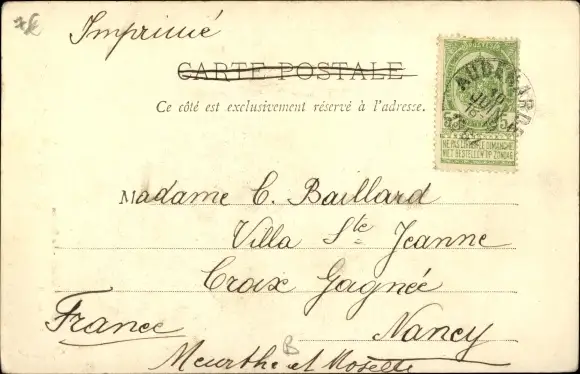 Imprimé
CARTE POSTALE
Ce côté est exclusivement réservé à l'adresse.
NE PAS LIVRER LE DIMANCHE
NIET BESTELLEN OP ZONDAG
Madame C. Baillard
Villa Ste Jeanne
Croix Gagnée
France
Nancy
B
Meurthe et Moselle